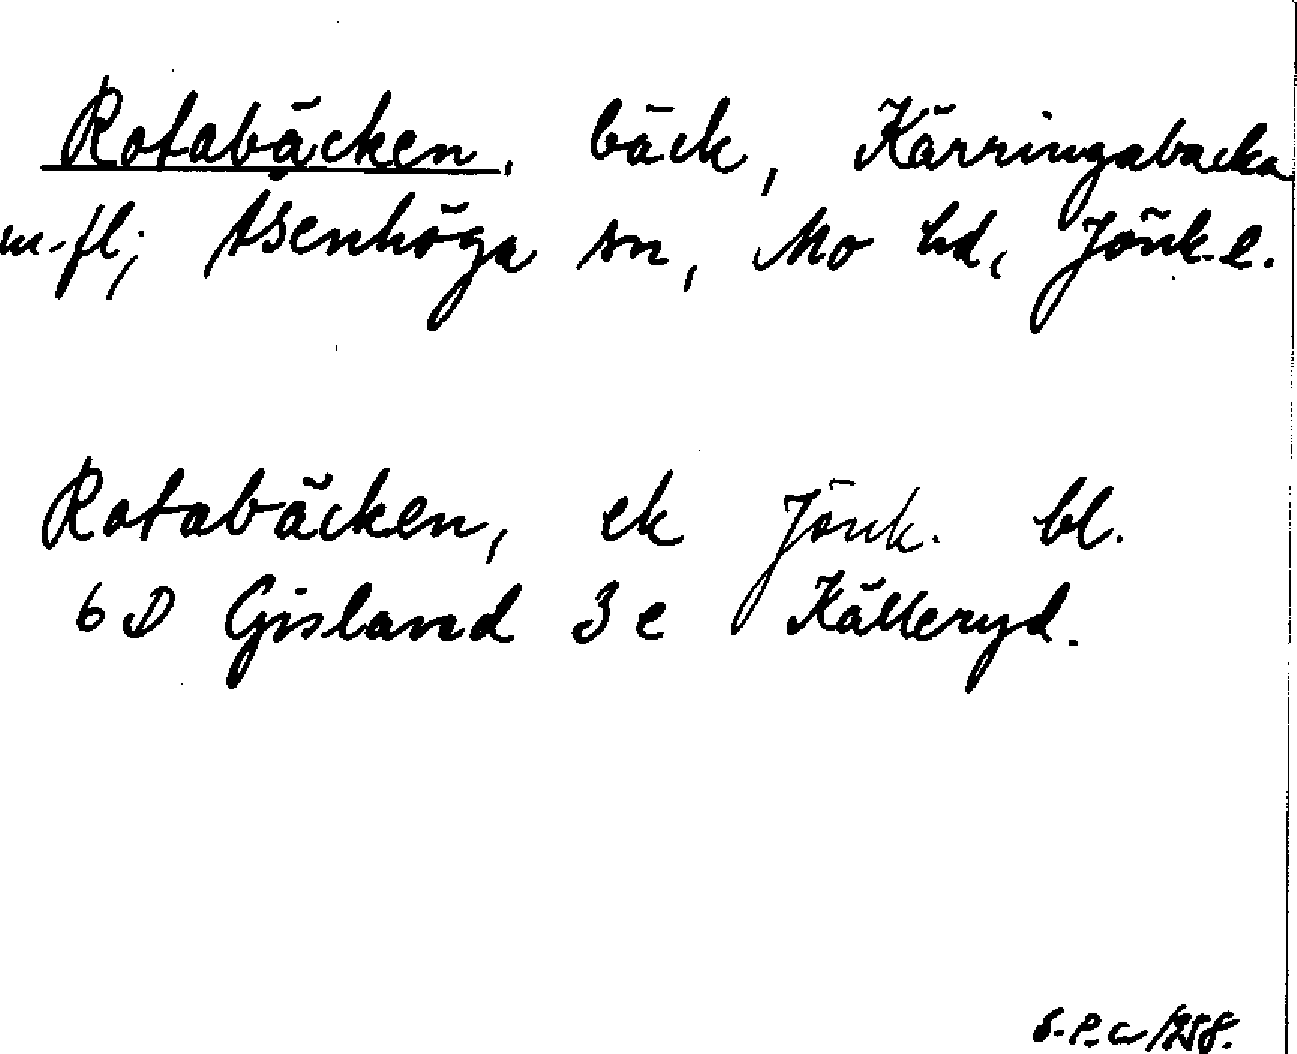 Rotabäcken, bäck, Kärringabacka
m.fl; Åsenhöga sn, Mo hd, Jönk.l.
Rotabäcken, ek Jönk. bl.
6 D Gislaved 3 e Källeryd.